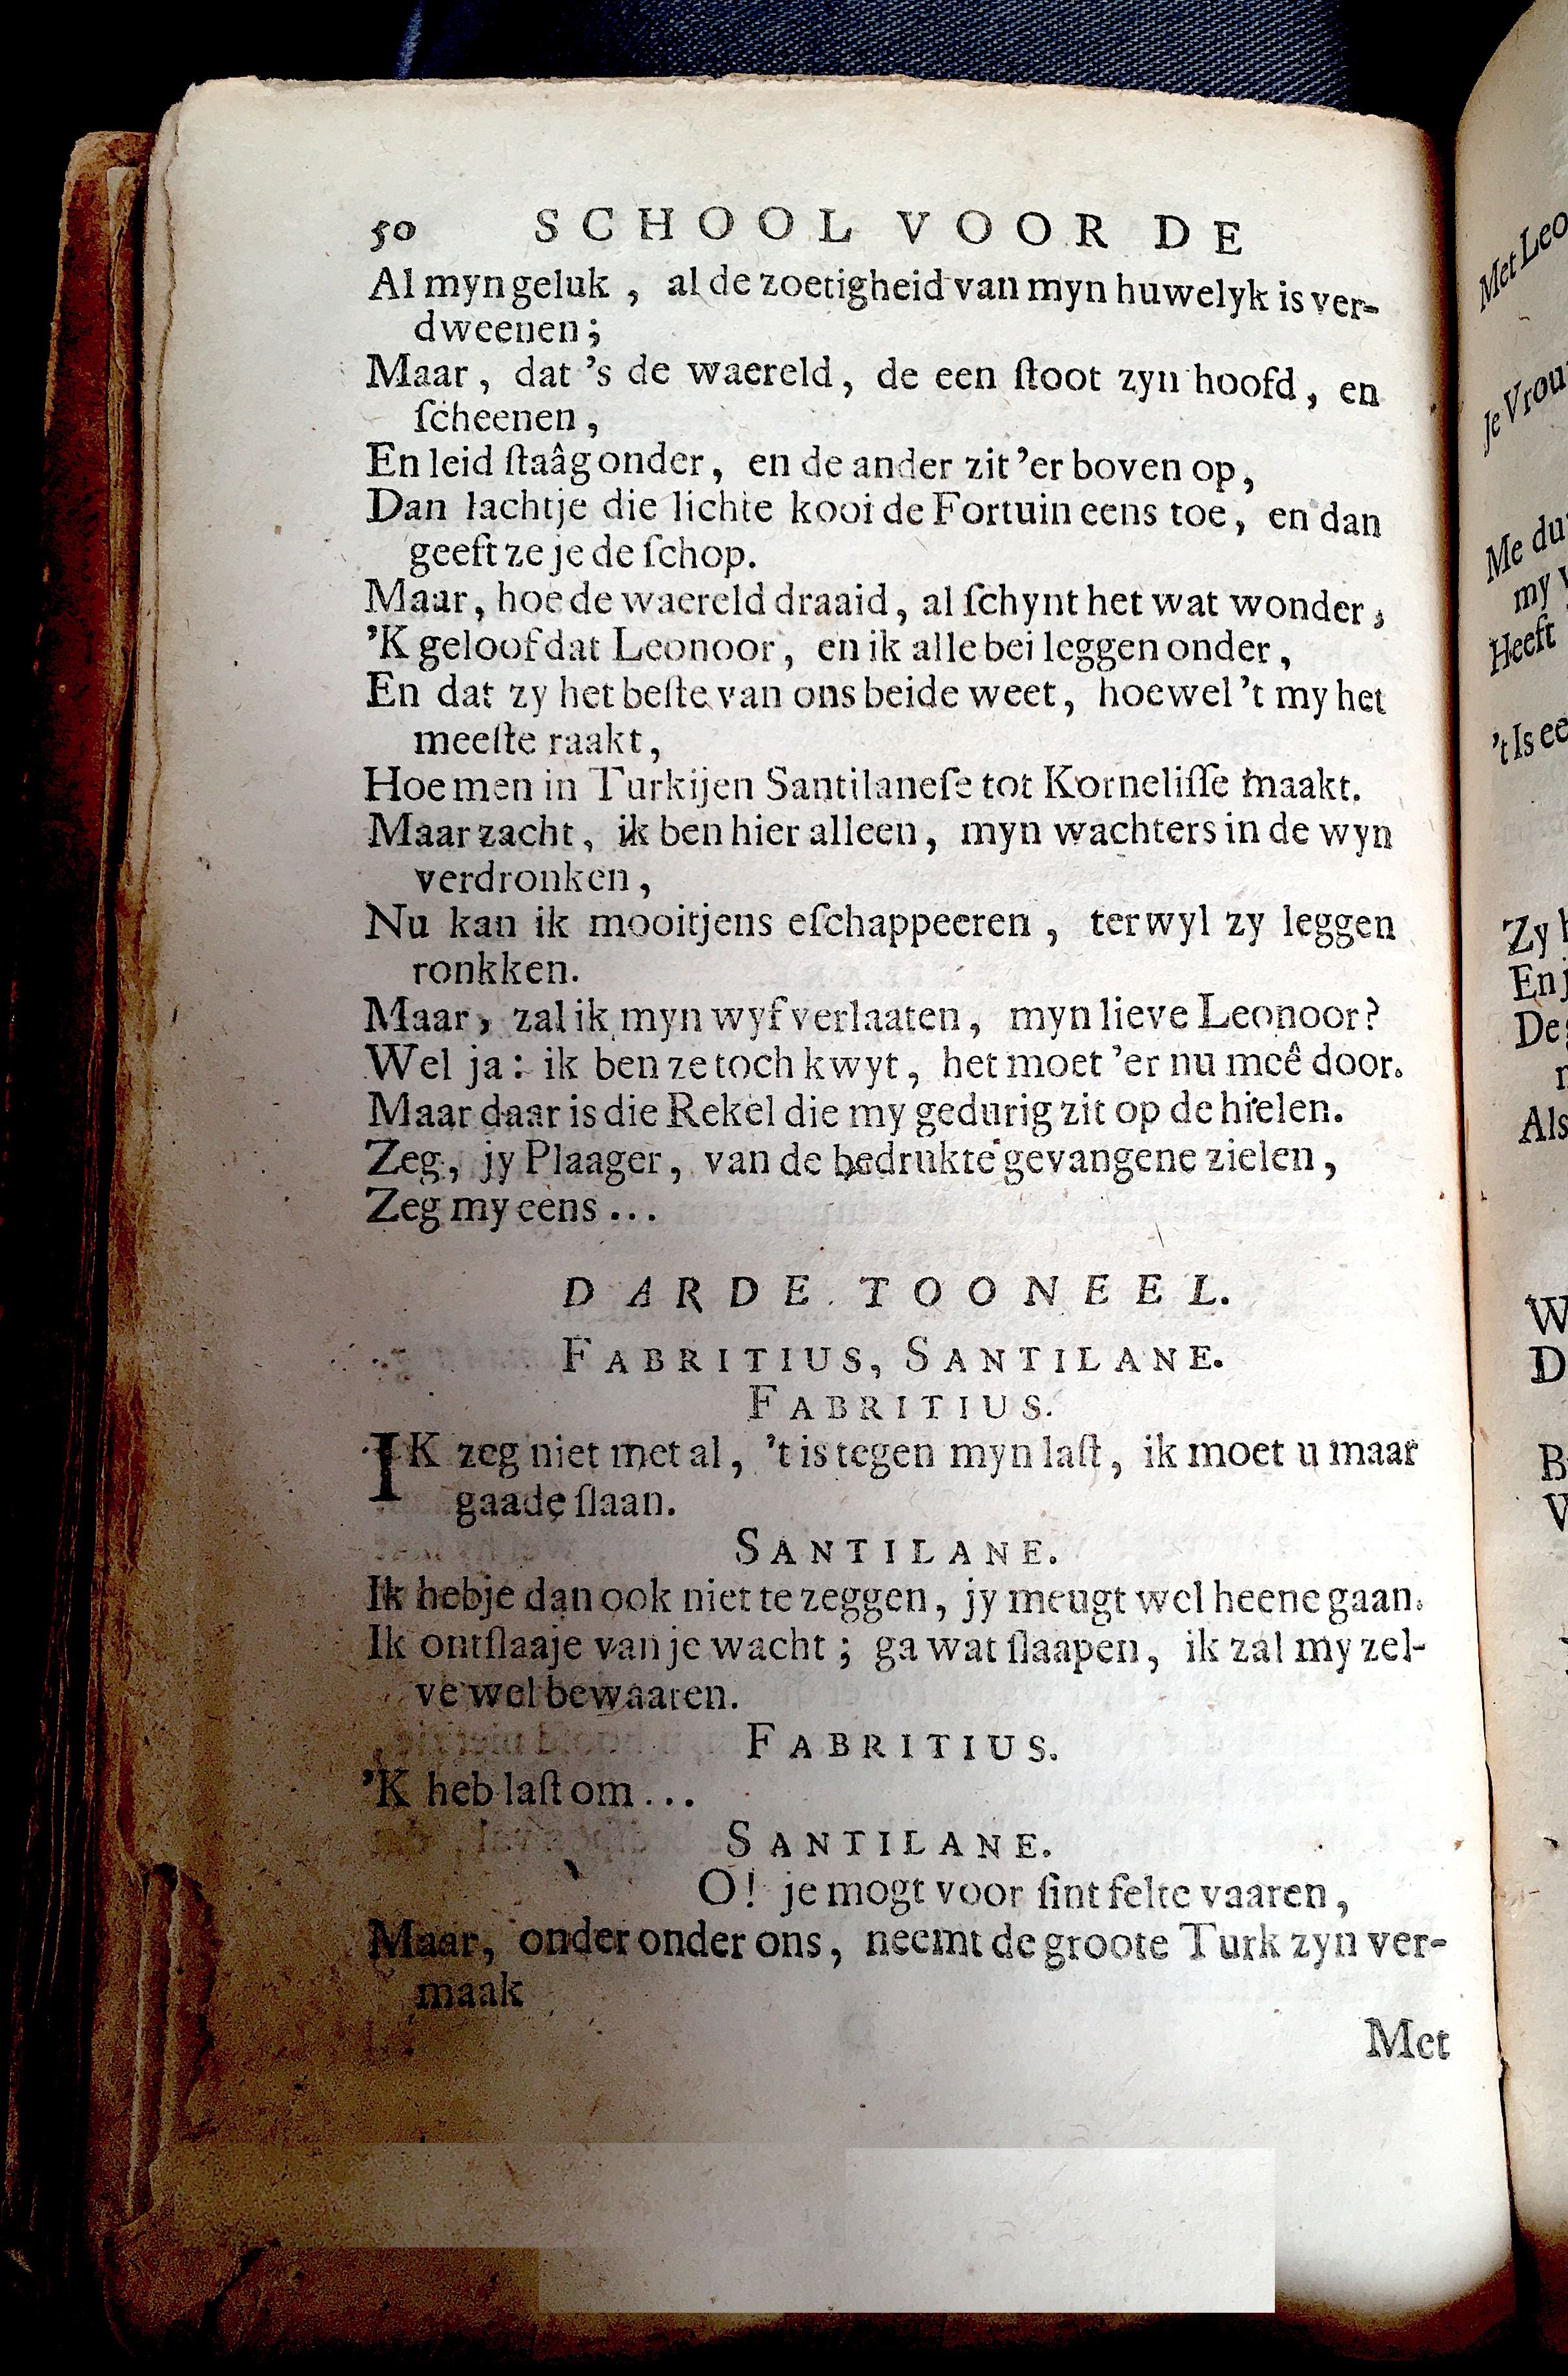 50 SCHOOL VOOR DE
Al myn geluk, al de zoetigheid van myn huwelyk is ver-
dweenen;
Maar, dat 's de waereld, de een ſtoot zyn hoofd, en
ſcheenen,
En leid ſtaâg onder, en de ander zit 'er boven op,
Dan lachtje die lichte kooi de Fortuin eens toe, en dan
geeft ze je de ſchop.
Maar, hoe de waereld draaid, al ſchynt het wat wonder,
'K geloof dat Leonoor, en ik alle bei leggen onder,
En dat zy het beſte van ons beide weet, hoewel 't my het
meeſte raakt,
Hoe men in Turkijen Santilaneſe tot Korneliſſe maakt.
Maar zacht, ik ben hier alleen, myn wachters in de wyn
verdronken,
Nu kan ik mooitjens eſchappeeren, terwyl zy leggen
ronkken.
Maar, zal ik myn wyf verlaaten, myn lieve Leonoor?
Wel ja: ik ben ze toch kwyt, het moet 'er nu meê door.
Maar daar is die Rekel die my gedurig zit op de hielen.
Zeg, jy Plaager, van de bedrukte gevangene zielen,
Zeg my eens...
DARDE TOONEEL.
FABRITIUS, SANTILANE.
FABRITIUS.
IK zeg niet met al, 't is tegen myn laſt, ik moet u maar
gaade ſlaan.
SANTILANE.
Ik hebje dan ook niet te zeggen, jy meugt wel heene gaan.
Ik ontſlaaje van je wacht; ga wat ſlaapen, ik zal my zel-
ve wel bewaaren.
FABRITIUS.
'K heb laſt om...
SANTILANE.
O! je mogt voor ſint felte vaaren,
Maar, onder onder ons, neemt de groote Turk zyn ver-
maak
Met
Met Leo
Je Vrou
Me du
my
Heeft
't Is ee
Zy
En
De
Als
W
D
B